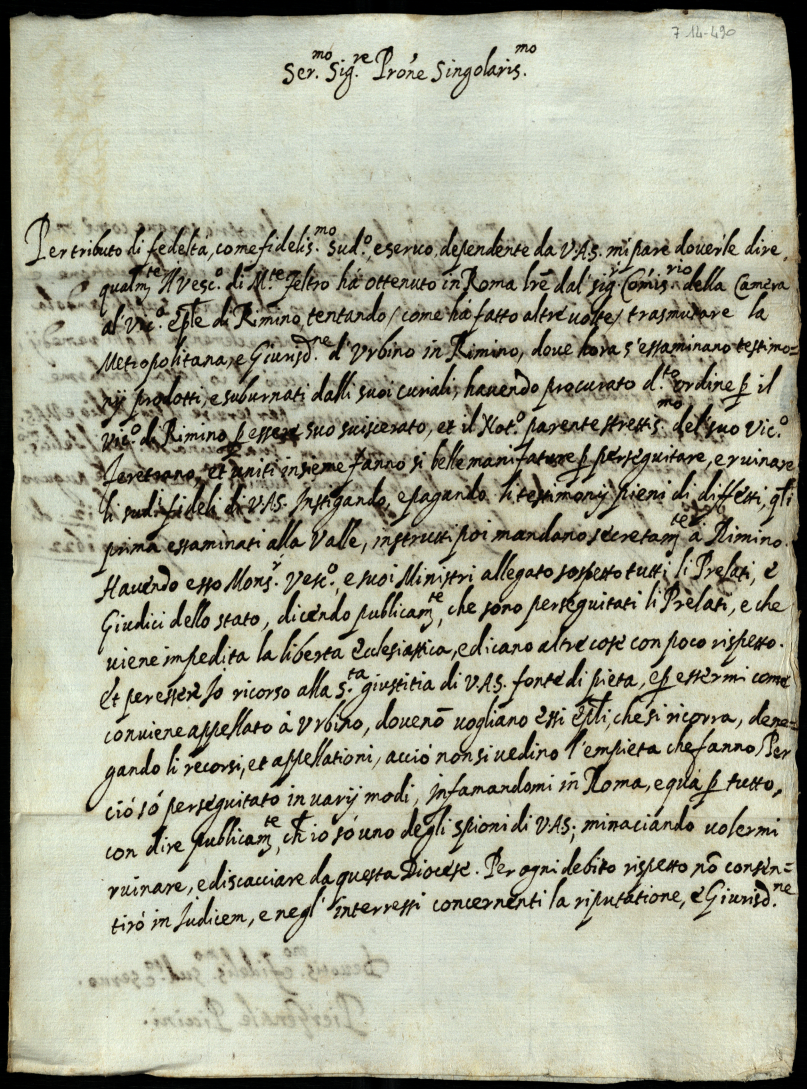 7-14-490
Ser.mo Sig.re Prõne Singolaris.mo
Per tributo di fedeltà, come fidelis.mo Sud.o, e servo, dependente da V.A.S. mi pare doverle dire,
qualm.te Il Vesc.o di M.te Feltro há ottenuto in Roma lrẽ dal' sig.r Comis.rio della Camera
al' Vic.o Ep̃le di Rimino, tentando / come há fatto altre volte / trasmutare la
Metropolitana, e Giurisd.ne d'Urbino in Rimino, dove hora s'essaminano testimo=
nij prodotti, e suburnati dalli suoi curiali, havendo procurato d.to ordine ꝑ il
Vic.o di Rimino ꝑ essere suo suiscerato, et il Not.o parente strettis.mo del' suo Vic.o
Feretrano, et uniti insieme fanno si belle manifature ꝑ perseguitare, e ruinare
li sudi fideli di V.A.S. Instigando, e pagando li testimonij pieni di diffetti, q̃li
prima essaminati alla Valle, instrutti poi mandano secretam.te á Rimino.
Havendo esso Mons.r Vesc.o, e suoi Ministri allegato sospetto tutti li Prelati, e
Giudici dello stato, dicendo publicam.te, che sono perseguitati li Prelati, e che
viene impedita la libertà ecclesiastica, e dicano altre cose con poco rispetto.
Et per essere Io ricorso alla s.ta giustitia di V.A.S. fonte di pieta, e ꝑ essermi come
conviene appellato à Urbino, dove nõ vogliano essi ep̃li, che si ricorra, dene=
gando li recorsi, et appellationi, acciò non si vedino l'empieta che fanno, Per
ciò só perseguitato in varij modi, infamandomi in Roma, e quà ꝑ tutto,
con dire publicam.te, ch̃ io só uno degli spioni di V.A.S; minaciando volermi
ruinare, e discacciare da questa Diocese. Per ogni debito rispetto nõ consen=
tiró in Judicem, e negl' interressi concernenti la riputatione, e Giurisd.ne